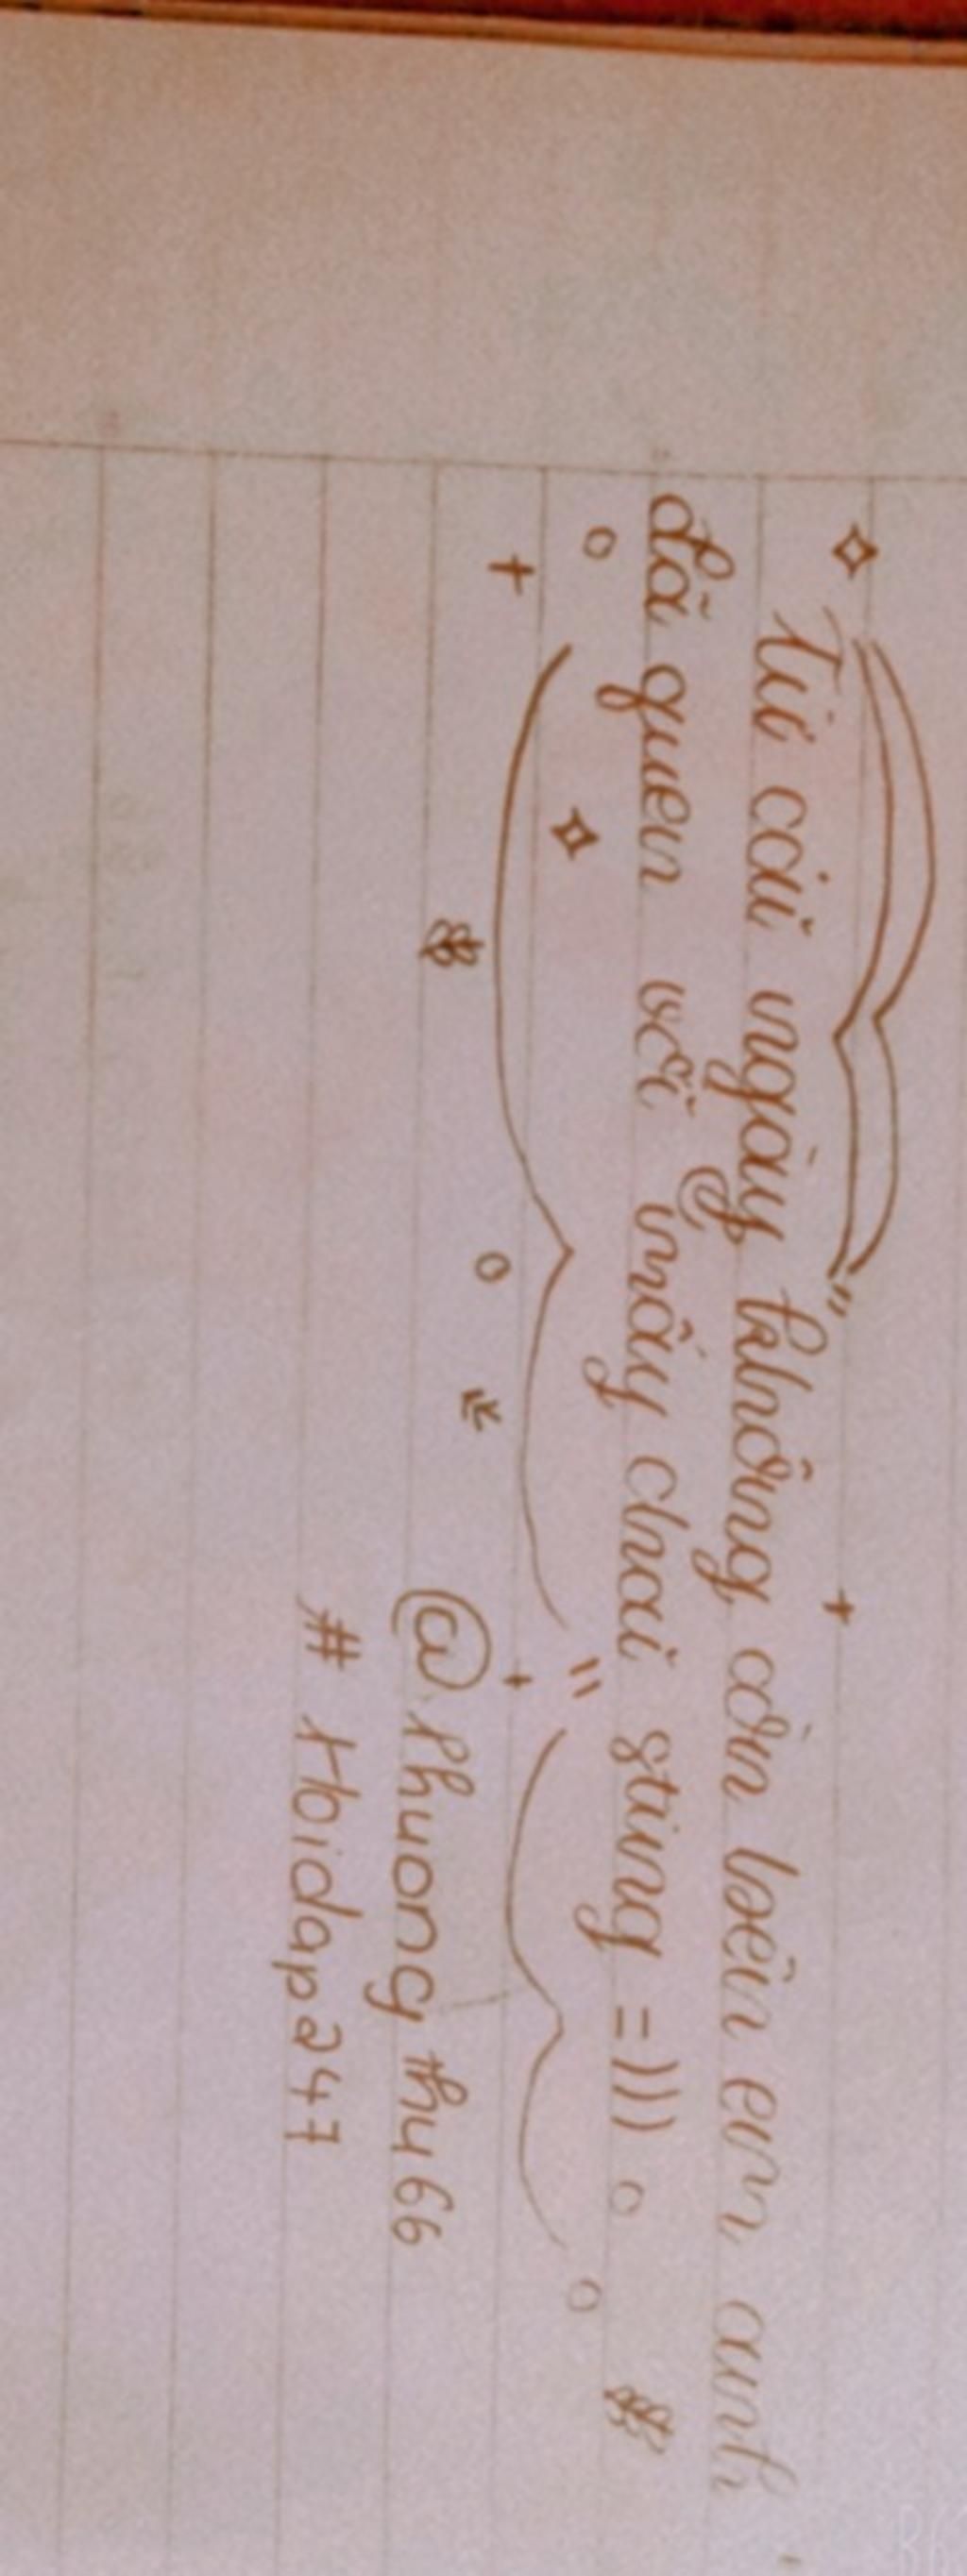 Từ cái ngày không còn bên em anh
đã quen với mấy chai sting =)))
@Phuong thu 66
# Hoidap247